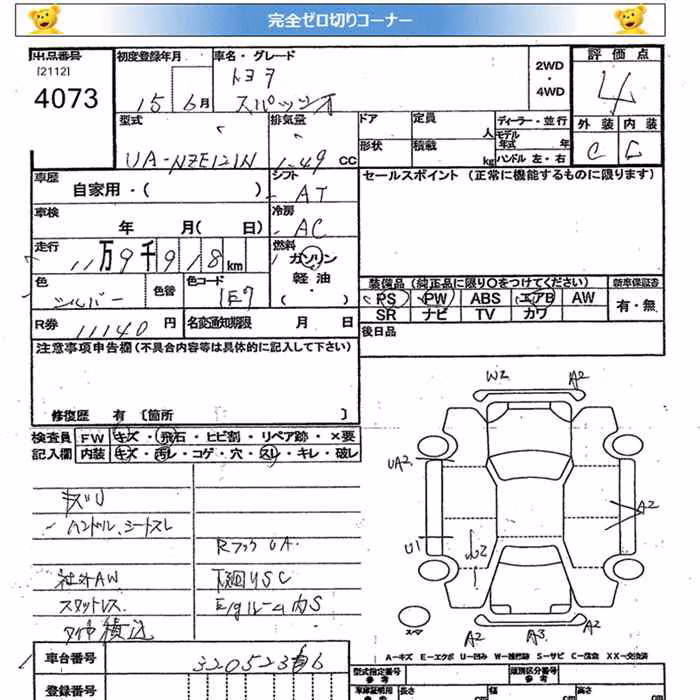 完全ゼロ切りコーナー
出品番号 初度登録年月 車名・グレード 2WD・4WD 評価点
[2112]
4073
15 6月
トヨタ
スパシオ
4
型式 排気量 ドア 定員 人 ディーラー・並行 外装 内装
UA-NZE121N 1.49 CC 形状 積載 kg モデル年式 年 C C
ハンドル 左・右
車歴 シフト セールスポイント (正常に機能するものに限ります)
自家用・( ) AT
車検 冷房
年 月( 日) AC
走行 燃料
11万9千918km ガソリン
軽油
・( )
色 色替 色コード
シルバー 1E7
装備品 (純正品に限り○をつけてください) 新車保証書
PS PW ABS エアB AW 有・無
SR ナビ TV カワ
R券 11140円 名変通知期限 月 日 後日品
注意事項申告欄 (不具合内容等は具体的に記入して下さい)
修復歴 有 〔箇所 〕
検査員 FW キズ・飛石・ヒビ割・リペア跡・×要
記入欄 内装 キズ・汚レ・コゲ・穴・スレ・キレ・破レ
キズU
ハンドル、シートスレ
RフックUA.
社外AW 下廻りSC
スタットレス E/gルーム内S
タイヤ積込
W2 A2
UA2
A2
U1 U2
スペア
A2 A3 A2
A-キズ E-エクボ U-凹み W-補修跡 S-サビ C-腐食 XX-交換済
車台番号 3205236
登録番号
型式指定番号 参考 類別区分番号 参考
車庫証明用 参考 長さ cm 幅 cm 高さ cm